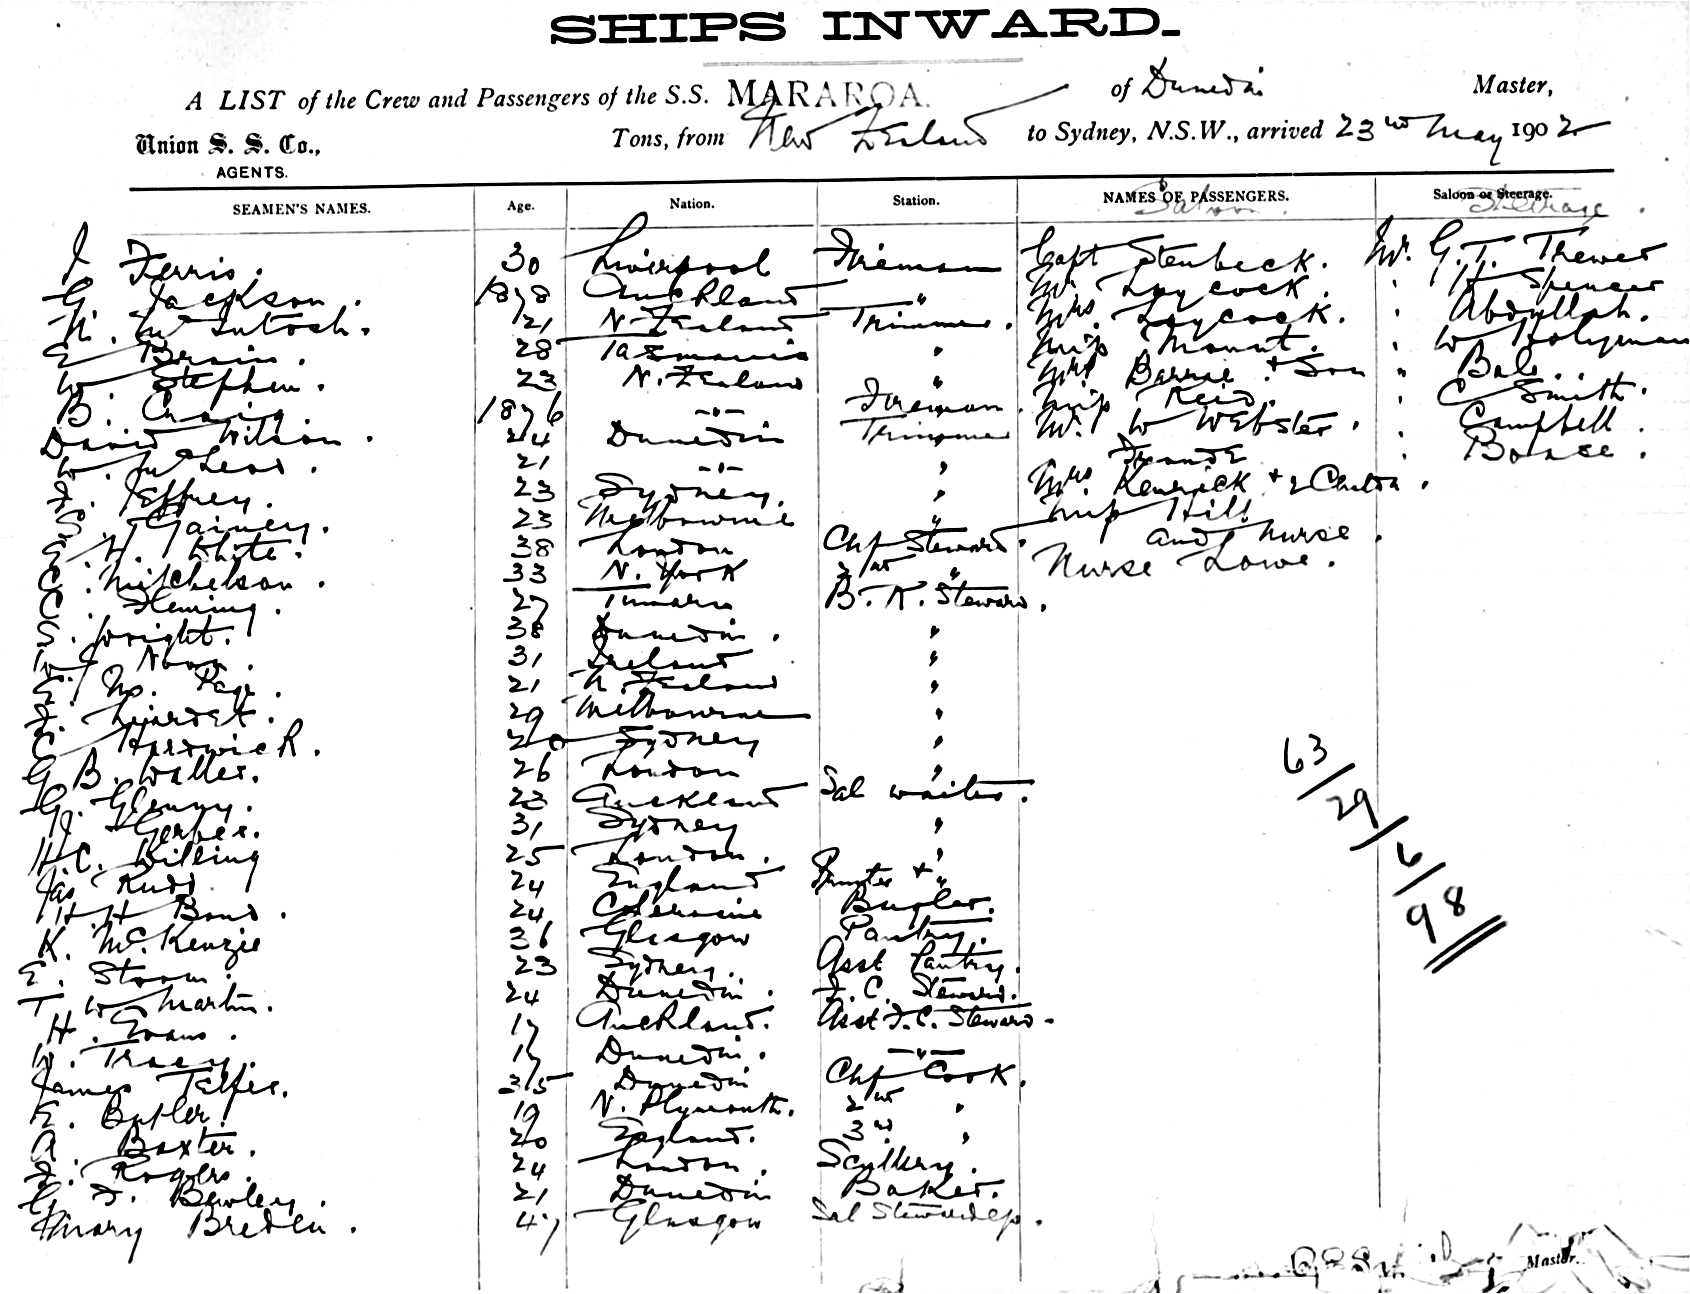 SHIPS INWARD.
A LIST of the Crew and Passengers of the S.S. MARAROA. of Dunedin Master,
Union S. S. Co., Tons, from New Zealand to Sydney, N.S.W., arrived 23rd May 1902
AGENTS.
SEAMEN'S NAMES. Age. Nation. Station. NAMES OF PASSENGERS. Saloon or Steerage.
Saloon Steerage
J Ferris. 30 Liverpool Fireman Capt Stenbeck. Mr. G. T. Trewer
G Jackson. 18 Auckland " Mr. Laycock. " H Spencer
N. McIntosh. 21 N. Zealand Trimmer. Mrs. Laycock. " Abdullah.
E Brain. 28 Tasmania " Miss Mount. " W Holyman
W Stephen. 23 N. Zealand " Mrs Barrie + Son " Bale.
B. Craig. -"- Fireman. Miss Reid. " C Smith.
David Wilson. 24 Dunedin Trimmer Mr. W Webster. " Campbell.
W. McLeod. 21 -"- " " Boase.
F. Jeffrey. 23 Sydney. " Mrs. Kenrick + 2 Children.
S. Gainey. 23 Melbourne " Miss Hill
G. H. White. 38 London Chf Steward. and Nurse.
C. Mitchelson. 33 N. York 2nd " Nurse Lowe.
C. Fleming. 27 Timaru B. K. Steward.
S. Wright. 38 Dunedin. "
W Noon. 31 Ireland "
G. Page. 21 N. Zealand "
F. Liardet. 29 Melbourne "
C Hardwick. 20 Sydney "
G B. Waller. 26 London "
G. Glenny. 23 Auckland Sal waiter.
J Gerber. 31 Sydney "
H C. Billing 25 London. "
Jas Rudd 24 England Printer + "
H H Bond. 24 Coleraine Bugler.
K. McKenzie 36 Glasgow Pantry.
E. Storm. 23 Sydney. Asst Pantry.
T W Martin. 24 Dunedin. F. C. Steward.
H. Evans. 17 Auckland. Asst F. C. Steward.
W. Tracy. 17 Dunedin. -"-
James Telfer. 35 Dunedin Chf Cook.
E. Butler. 19 N. Plymouth. 2nd "
A Baxter. 20 England. 3rd "
F. Rogers. 24 London. Scullery.
G F. Bewley. 21 Dunedin Baker.
Mary Breden. 47 Glasgow Sal Stewardess.
63/
29/
6/
98
Master.